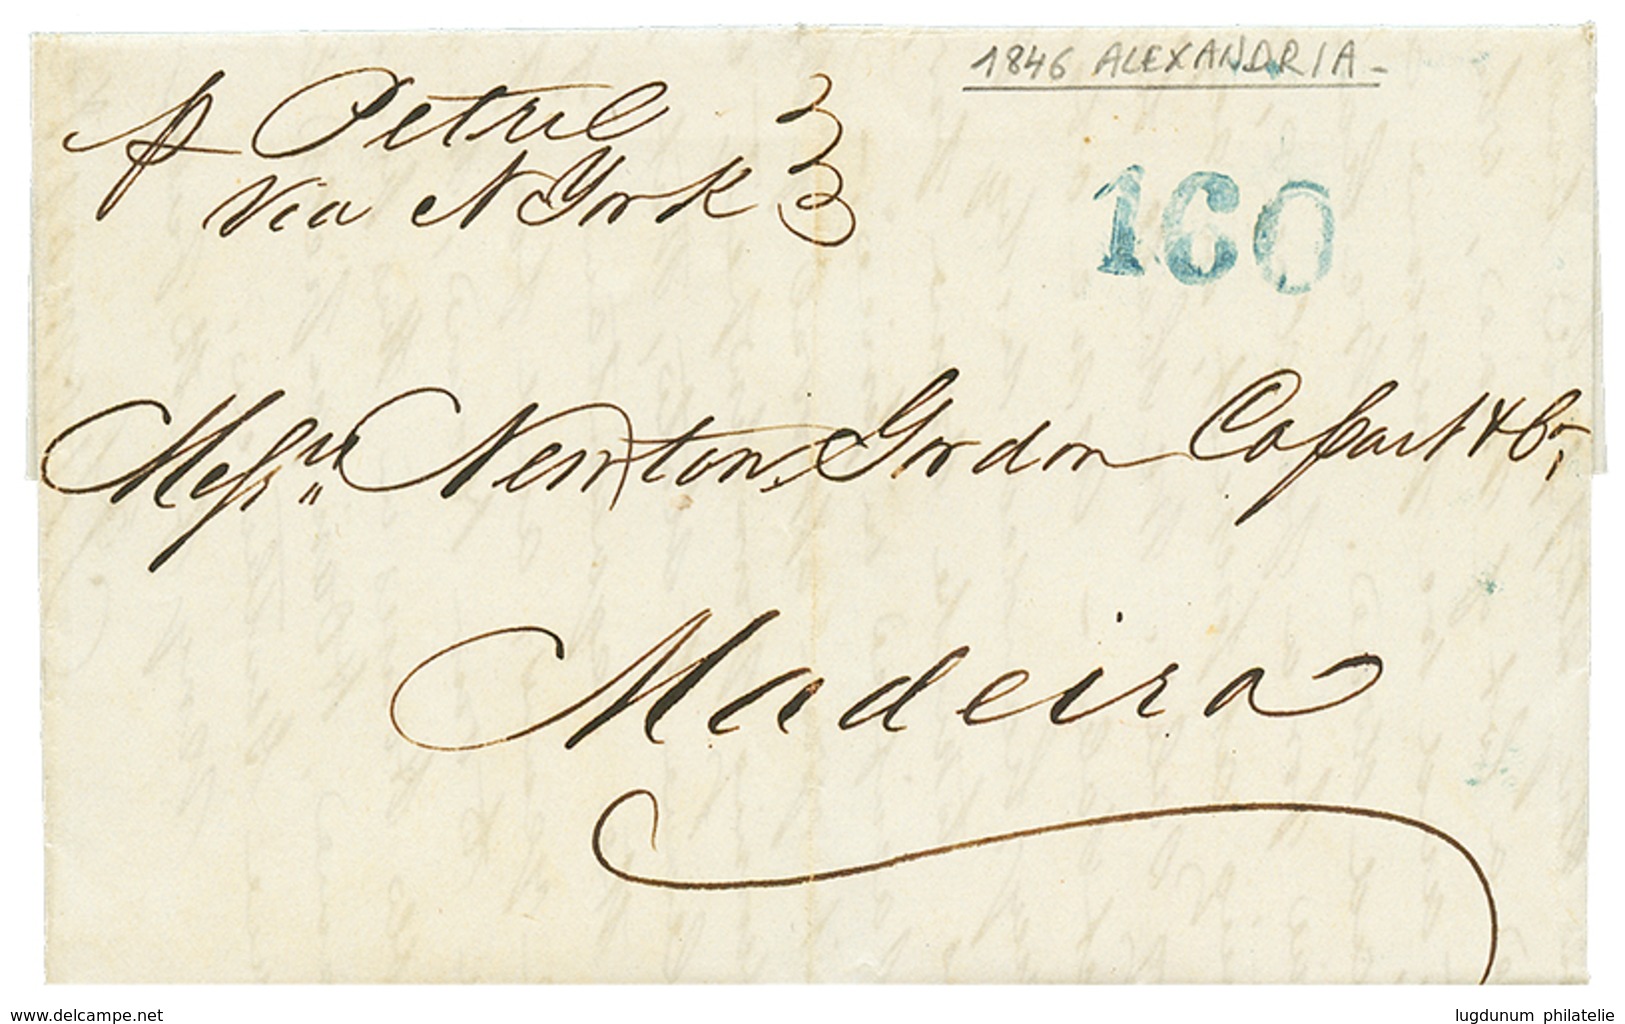 1846 ALEXANDRIA -
p Petrel
Via N York
160
Messrs Newton, Gordon Cossart & Co,
Madeira
www.delcampe.net
lugdunum philatelie